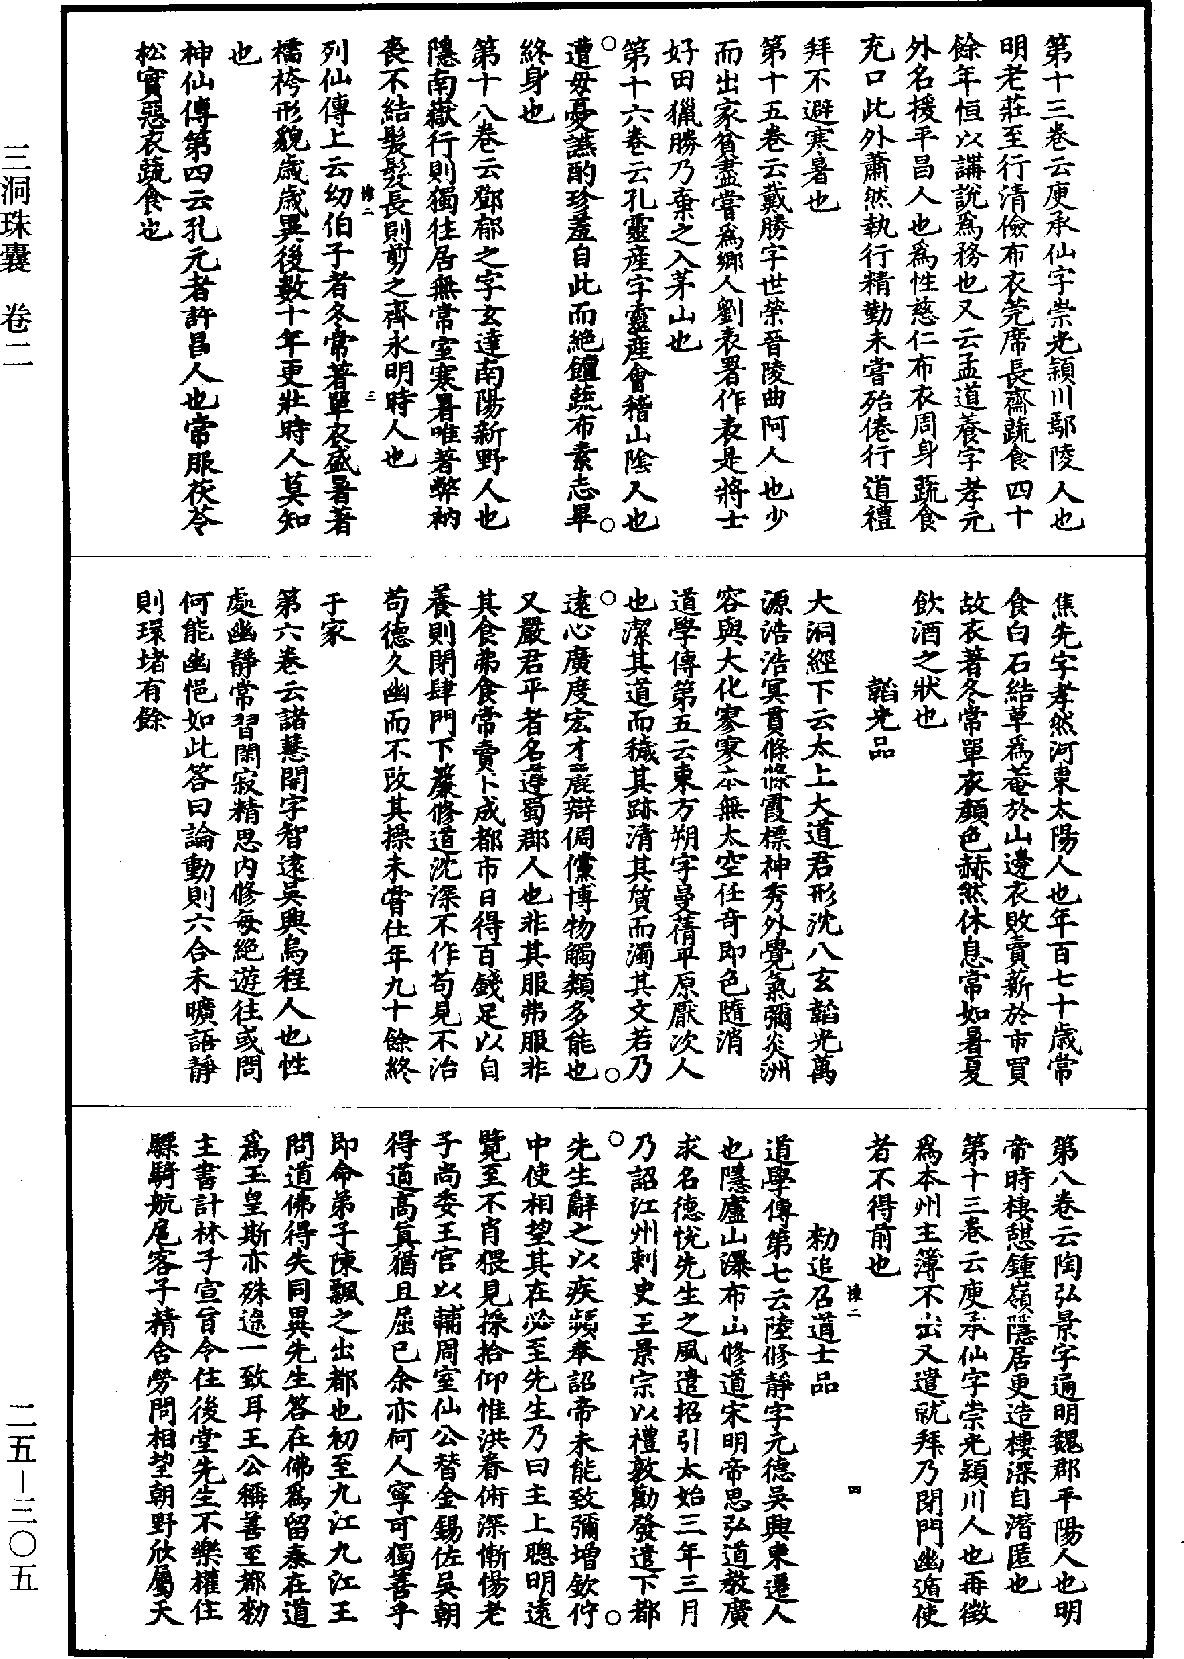 三洞珠囊　卷二
第十三卷云庾承仙字崇光潁川鄢陵人也
明老莊至行清儉布衣莞席長齋蔬食四十
餘年恒以講說爲務也又云孟道養字孝元
外名援平昌人也爲性慈仁布衣周身蔬食
充口此外蕭然執行精勤未嘗殆倦行道禮
拜不避寒暑也
第十五卷云戴勝字世榮晉陵曲阿人也少
而出家貧盡嘗爲鄉人劉表署作表是將士
好田獵勝乃棄之入茅山也
第十六卷云孔靈産字靈産會稽山陰人也
遭母憂讌酌珍羞自此而絶饘蔬布素志畢
終身也
第十八卷云鄧郁之字玄達南陽新野人也
隱南嶽行則獨往居無常室寒暑唯著弊衲
喪不結髮髮長則剪之齊永明時人也
列仙傳上云幼伯子者冬常著單衣盛暑著
襦袴形貌歲歲異後數十年更壯時人莫知
也
神仙傳第四云孔元者許昌人也常服茯苓
松實惡衣蔬食也
焦先字孝然河東太陽人也年百七十歲常
食白石結草爲菴於山邊衣敗賣薪於市買
故衣著冬常單衣顏色赫然休息常如暑夏
飲酒之狀也
韜光品
大洞經下云太上大道君形沈八玄韜光萬
源浩浩冥貫絛絛霞標神秀外覺氣彌炎洲
容與大化寥寥本無太空任奇即色隨消
道學傳第五云東方朔字曼蒨平原厭次人
也潔其道而穢其跡清其質而濁其文若乃
遠心廣度宏才麗辯倜儻博物觸類多能也
又嚴君平者名遵蜀郡人也非其服弗服非
其食弗食常賣卜成都市日得百錢足以自
養則閉肆門下簾修道沈深不作苟見不治
苟德久幽而不改其操未嘗仕年九十餘終
于家
第六卷云諸慧開字智遠吳興烏程人也性
處幽靜常習閑寂精思內修每絶遊往或問
何能幽悒如此答曰論動則六合未曠語靜
則環堵有餘
第八卷云陶弘景字通明魏郡平陽人也明
帝時棲憩鍾嶺隱居更造樓深自潛匿也
第十三卷云庾承仙字崇光潁川人也再徵
爲本州主簿不出又遣就拜乃閉門幽遁使
者不得前也
勑追召道士品
道學傳第七云陸修靜字元德吳興東遷人
也隱廬山瀑布山修道宋明帝思弘道教廣
求名德悅先生之風遣招引太始三年三月
乃詔江州刺史王景宗以禮敦勸發遣下都
先生辭之以疾頻奉詔帝未能致彌增欽佇
中使相望其在必至先生乃曰主上聰明遠
覽至不肖猥見採拾仰惟洪眷術深慚惕老
子尚委王官以輔周室仙公替金錫佐吳朝
得道高真猶且屈已余亦何人寧可獨善乎
即命弟子陳飄之出都也初至九江九江王
問道佛得失同異先生答在佛爲留秦在道
爲玉皇斯亦殊途一致耳王公稱善至都勑
主書計林子宣旨令住後堂先生不樂權住
驃騎航扈客子精舍勞問相望朝野欣屬天
二五－三〇五